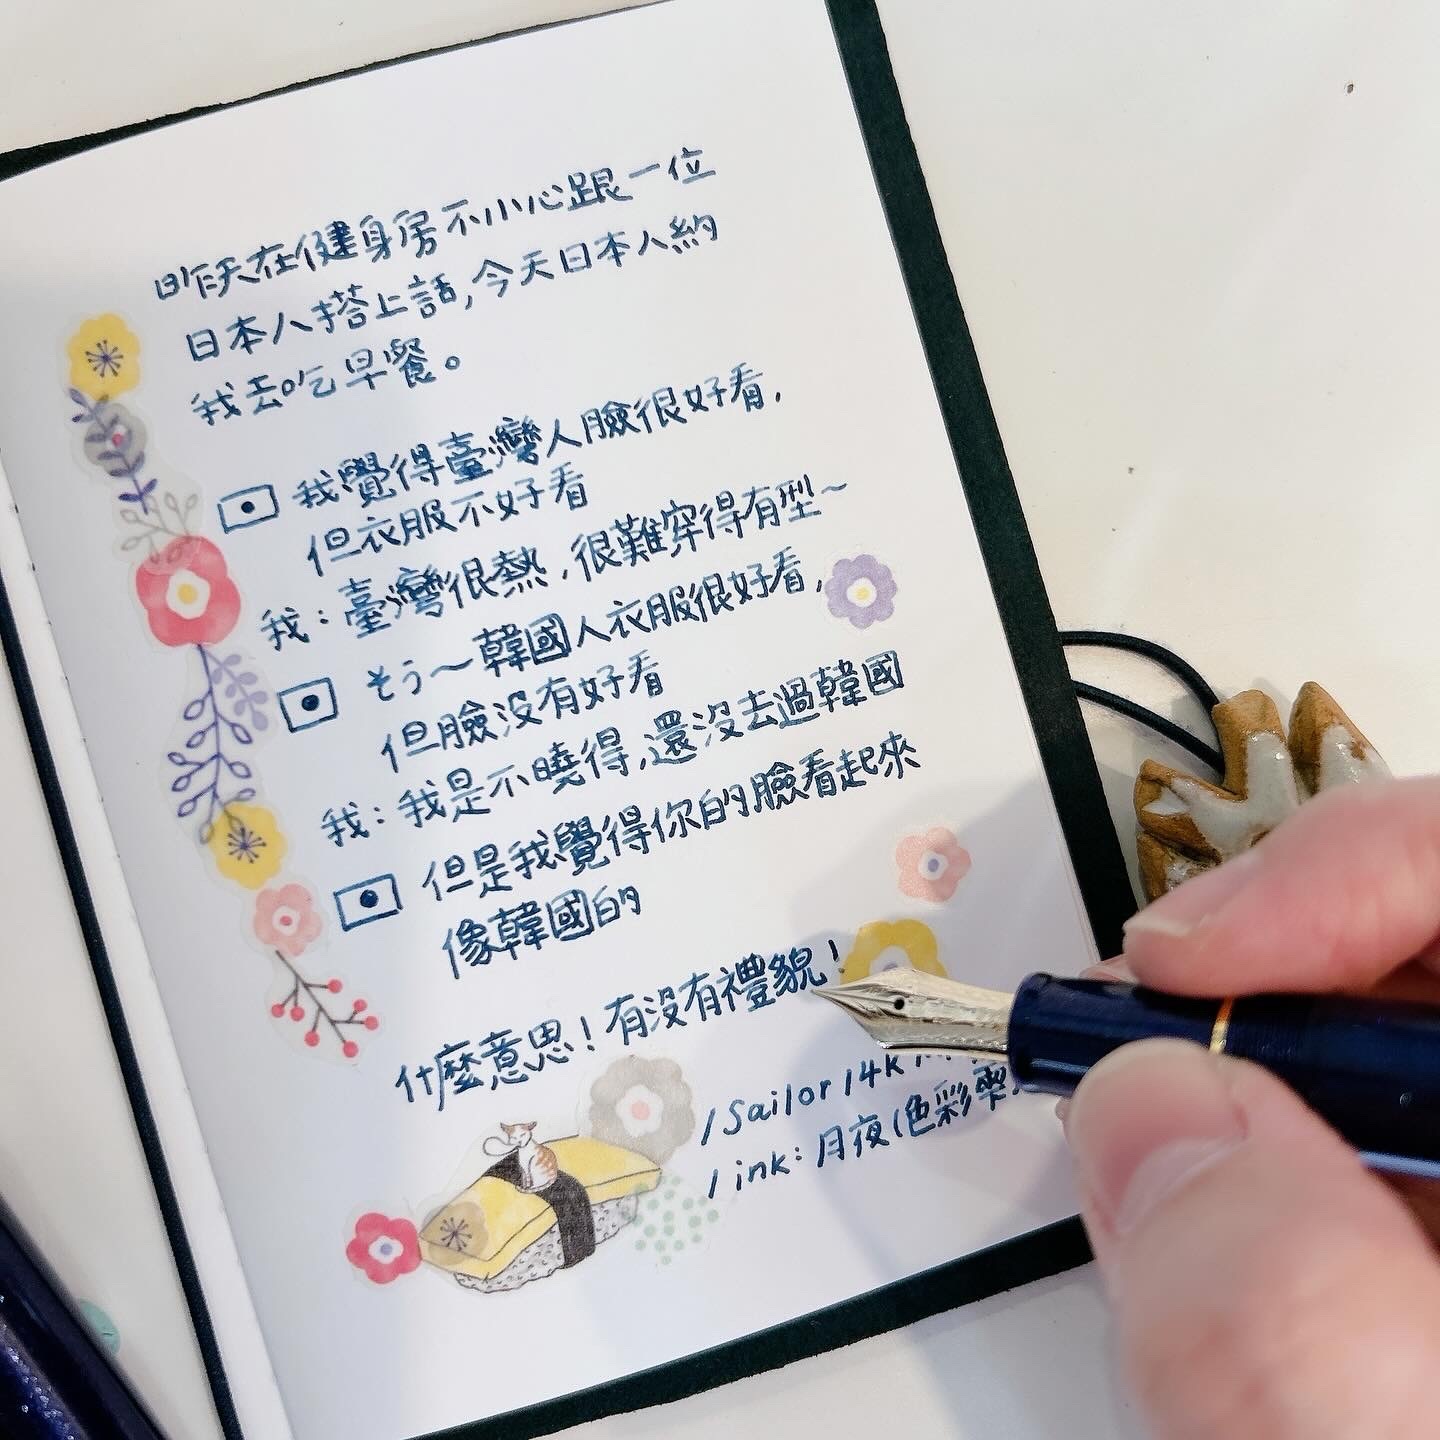 昨天在健身房不小心跟一位
日本人搭上話,今天日本人約
我去吃早餐。
我覺得臺灣人臉很好看,
但衣服不好看
我:臺灣很熱,很難穿得有型~
そう~韓國人衣服很好看,
但臉沒有好看
我:我是不曉得,還沒去過韓國
但是我覺得你的臉看起來
像韓國的
什麼意思!有沒有禮貌!
/Sailor 14K
/ink:月夜(色彩雫